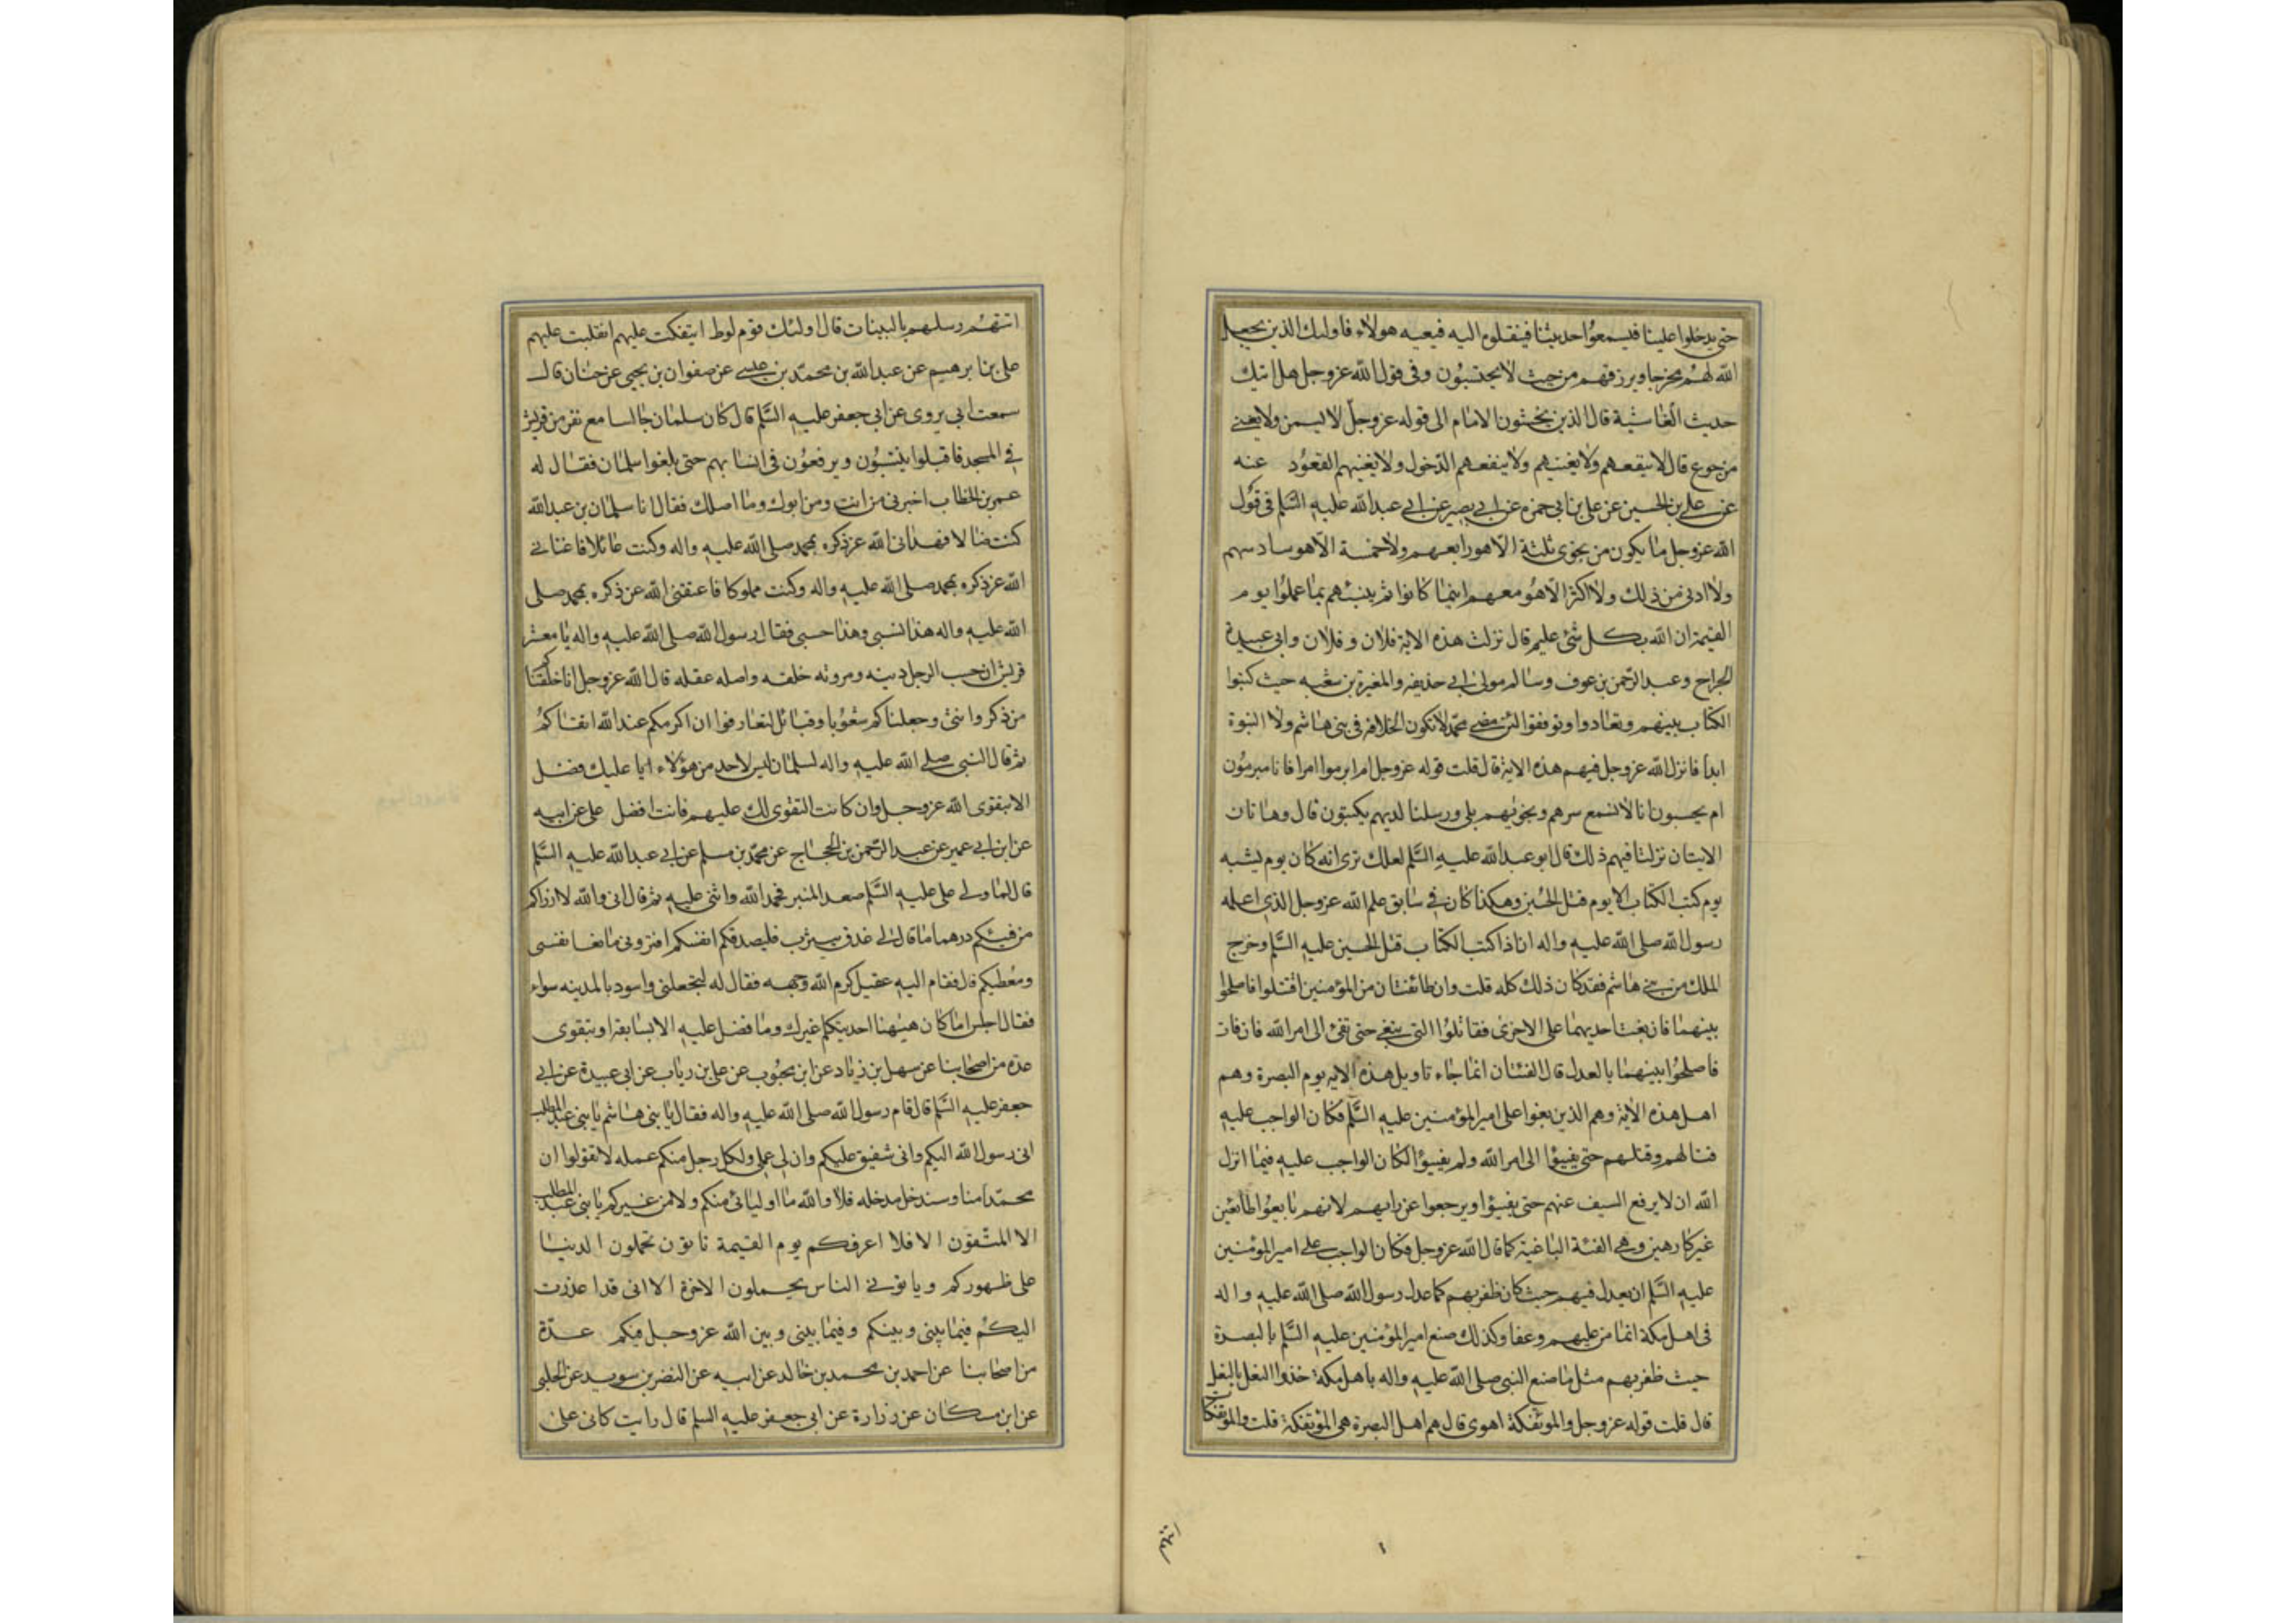 حتى يدخلوا علينا فيسمعوا حديثنا فينقلوه اليه فيعيه هولاء فاولئك الذين يجعل
الله لهم مخرجا ويرزقهم من حيث لا يحتسبون وفى قول الله عزوجل هل اتيك
حديث الغاشية قال الذين يغشون الامام الى قوله عزوجل لا يسمن ولا يغنى
من جوع قال لا ينفعهم ولا يغنيهم ولا ينفعهم الدخول ولا يغنيهم القعود عنه
عن على بن الحسين عن على بن ابى حمزه عن ابى بصير عن ابى عبد الله عليه السلم فى قول
الله عزوجل ما يكون من نجوى ثلثة الا هو رابعهم ولا خمسة الا هو سادسهم
ولا ادنى من ذلك ولا اكثر الا هو معهم اينما كانوا ثم ينبئهم بما عملوا يوم
القيمة ان الله بكل شئ عليم قال نزلت هذه الاية فلان و فلان وابى عبيدة
الجراح وعبد الرحمن بن عوف وسالم مولى ابى حذيفه والمغيرة بن شعبه حيث كتبوا
الكتاب بينهم وتعادوا وتوفقوا لئن مضى محمد لا تكون الخلافه فى بنى هاشم ولا النبوة
ابدا فانزل الله عزوجل فيهم هذه الاية قال قلت قوله عزوجل ام ابرموا امرا فانا مبرمون
ام يحسبون انا لا نسمع سرهم ونجويهم بلى ورسلنا لديهم يكتبون قال وهاتان
الايتان نزلتا فيهم ذلك قال ابو عبد الله عليه السلم لعلك ترى انه كان يوم يشبه
يوم كتب الكتاب الا يوم قتل الحسين وهكذا كان فى سابق علم الله عزوجل الذى اعلمه
رسول الله صلى الله عليه واله ان اذا كتب الكتاب قتل الحسين عليه السلم وخرج
الملك من بنى هاشم فقد كان ذلك كله قلت وان طائفتان من المؤمنين اقتتلوا فاصلحوا
بينهما فان بغت احديهما على الاخرى فقاتلوا التى تبغى حتى تفئ الى امر الله فان فات
فاصلحوا بينهما بالعدل قال الفئتان انما جاء تاويل هذه الايه يوم البصرة وهم
اهل هذه الاية وهم الذين بغوا على امير المؤمنين عليه السلم فكان الواجب عليه
قتالهم وقتلهم حتى يفيئوا الى امر الله ولو لم يفيئوا لكان الواجب عليه فيما انزل
الله ان لا يرفع السيف عنهم حتى يفيئوا ويرجعوا عن رايهم لانهم بايعوا طائعين
غير كارهين وهى الفئة الباغية كما قال الله عزوجل فكان الواجب على امير المؤمنين
عليه السلم ان يعدل فيهم حيث كان ظفر بهم كما عدل رسول الله صلى الله عليه واله
فى اهل مكة انما من عليهم وعفا وكذلك صنع امير المؤمنين عليه السلم باهل البصرة
حيث ظفر بهم مثل ما صنع النبى صلى الله عليه واله باهل مكة حذوا النعل بالنعل
قال قلت قوله عزوجل والموتفكة اهوى قال هم اهل البصرة هى المؤتفكة قلت والمؤتفكات
اتتهم
اتتهم رسلهم بالبينات قال اولئك قوم لوط ايتفكت عليهم انقلبت عليهم
على بن ابرهيم عن عبد الله بن محمد بن عيسى عن صفوان بن يحيى عن حنان قال
سمعت ابى يروى عن ابى جعفر عليه السلم قال كان سلمان جالسا مع نفر من قريش
فى المسجد فاقبلوا ينتسبون ويرفعون فى انسابهم حتى بلغوا سلمان فقال له
عمر بن الخطاب اخبرنى من انت ومن ابوك وما اصلك فقال انا سلمان بن عبد الله
كنت ضالا فهدانى الله عز ذكره بمحمد صلى الله عليه واله وكنت عائلا فاغنانى
الله عز ذكره بمحمد صلى الله عليه واله وكنت مملوكا فاعتقنى الله عز ذكره بمحمد صلى
الله عليه واله هذا نسبى وهذا حسبى فقال رسول الله صلى الله عليه واله يا معشر
قريش ان حسب الرجل دينه ومروته خلقه واصله عقله قال الله عزوجل انا خلقناكم
من ذكر وانثى وجعلناكم شعوبا وقبائل لتعارفوا ان اكرمكم عند الله اتقاكم
ثم قال النبى صلى الله عليه واله لسلمان ليس لاحد من هؤلاء ايا عليك فضل
الا بتقوى الله عزوجل وان كانت التقوى لك عليهم فانت افضل على عن ابيه
عن ابن ابى عمير عن عبد الرحمن بن الحجاج عن محمد بن مسلم عن ابى عبد الله عليه السلم
قال لما ولى على عليه السلم صعد المنبر فحمد الله واثنى عليه ثم قال انى والله لا ارزاكم
من فيئكم درهما ما قام لى عذق بيثرب فليصدقكم انفسكم افترونى مانعا نفسى
ومعطيكم قال فقام اليه عقيل كرم الله وجهه فقال له لتجعلنى واسود بالمدينه سواء
فقال اجلس اما كان هيهنا احد يتكلم غيرك وما فضل عليه الا بسابقة او بتقوى
عده من اصحابنا عن سهل بن زياد عن ابن محبوب عن على بن رياب عن ابى عبيدة عن ابى
جعفر عليه السلم قال قام رسول الله صلى الله عليه واله فقال يا بنى هاشم يا بنى عبد المطلب
انى رسول الله اليكم وانى شفيق عليكم وان لى عملى ولكل رجل منكم عمله لا تقولوا ان
محمدا منا وسندخل مدخله فلا والله ما اوليائى منكم ولا من غيركم يا بنى عبد المطلب
الا المتقون الا فلا اعرفكم يوم القيمة تاتون تحملون الدنيا
على ظهوركم وياتونى الناس يحملون الاخرة الا انى قد اعذرت
اليكم فيما بينى وبينكم وفيما بينى وبين الله عزوجل فيكم عدة
من اصحابنا عن احمد بن محمد بن خالد عن ابيه عن النضر بن سويد عن الحلبى
عن ابن مسكان عن زرارة عن ابى جعفر عليه السلم قال رايت كانى على